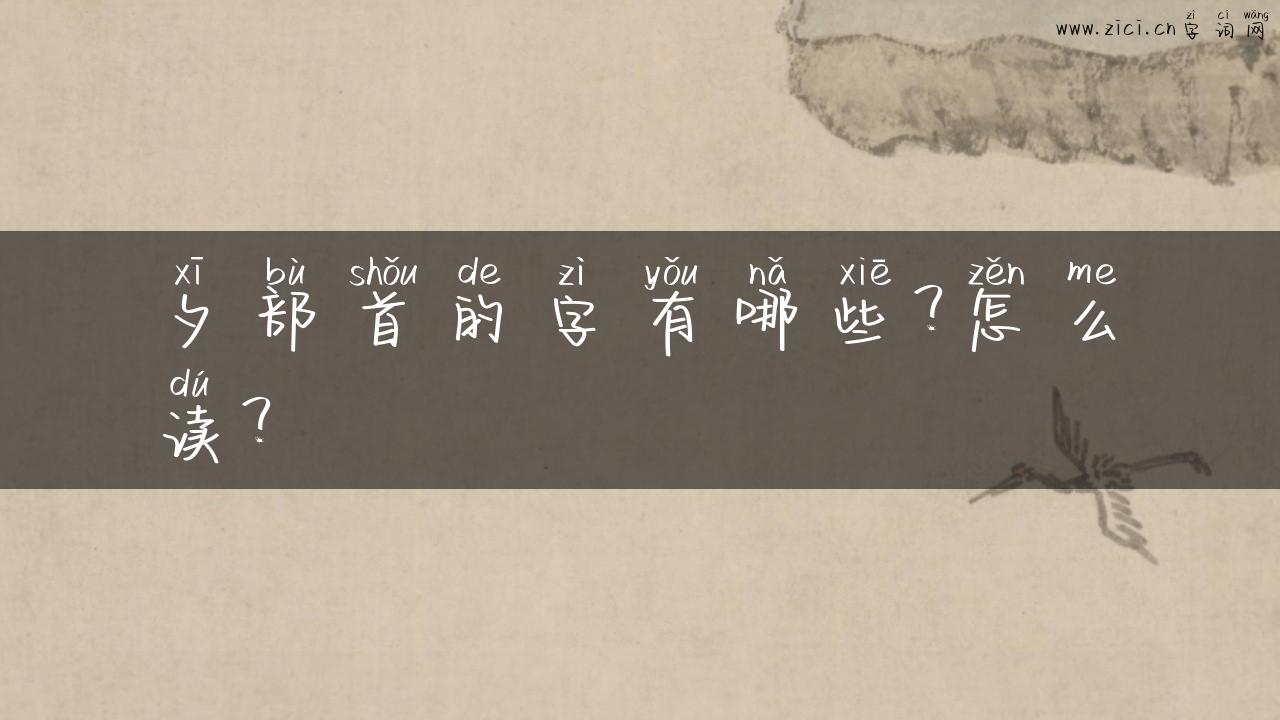 zì cí wǎng
www.zici.cn 字词网
xī bù shǒu de zì yǒu nǎ xiē zěn me
夕部首的字有哪些?怎么
dú
读?